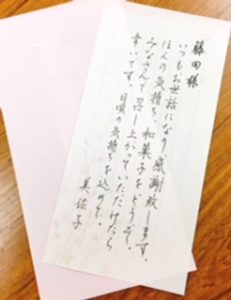 藤田様
いつもお世話になり感謝致します。
ほんの気持ち、和菓子をどうぞ。
みなさんで召し上がっていただけたら
幸いです。日頃の気持ちを込めて。
美佐子